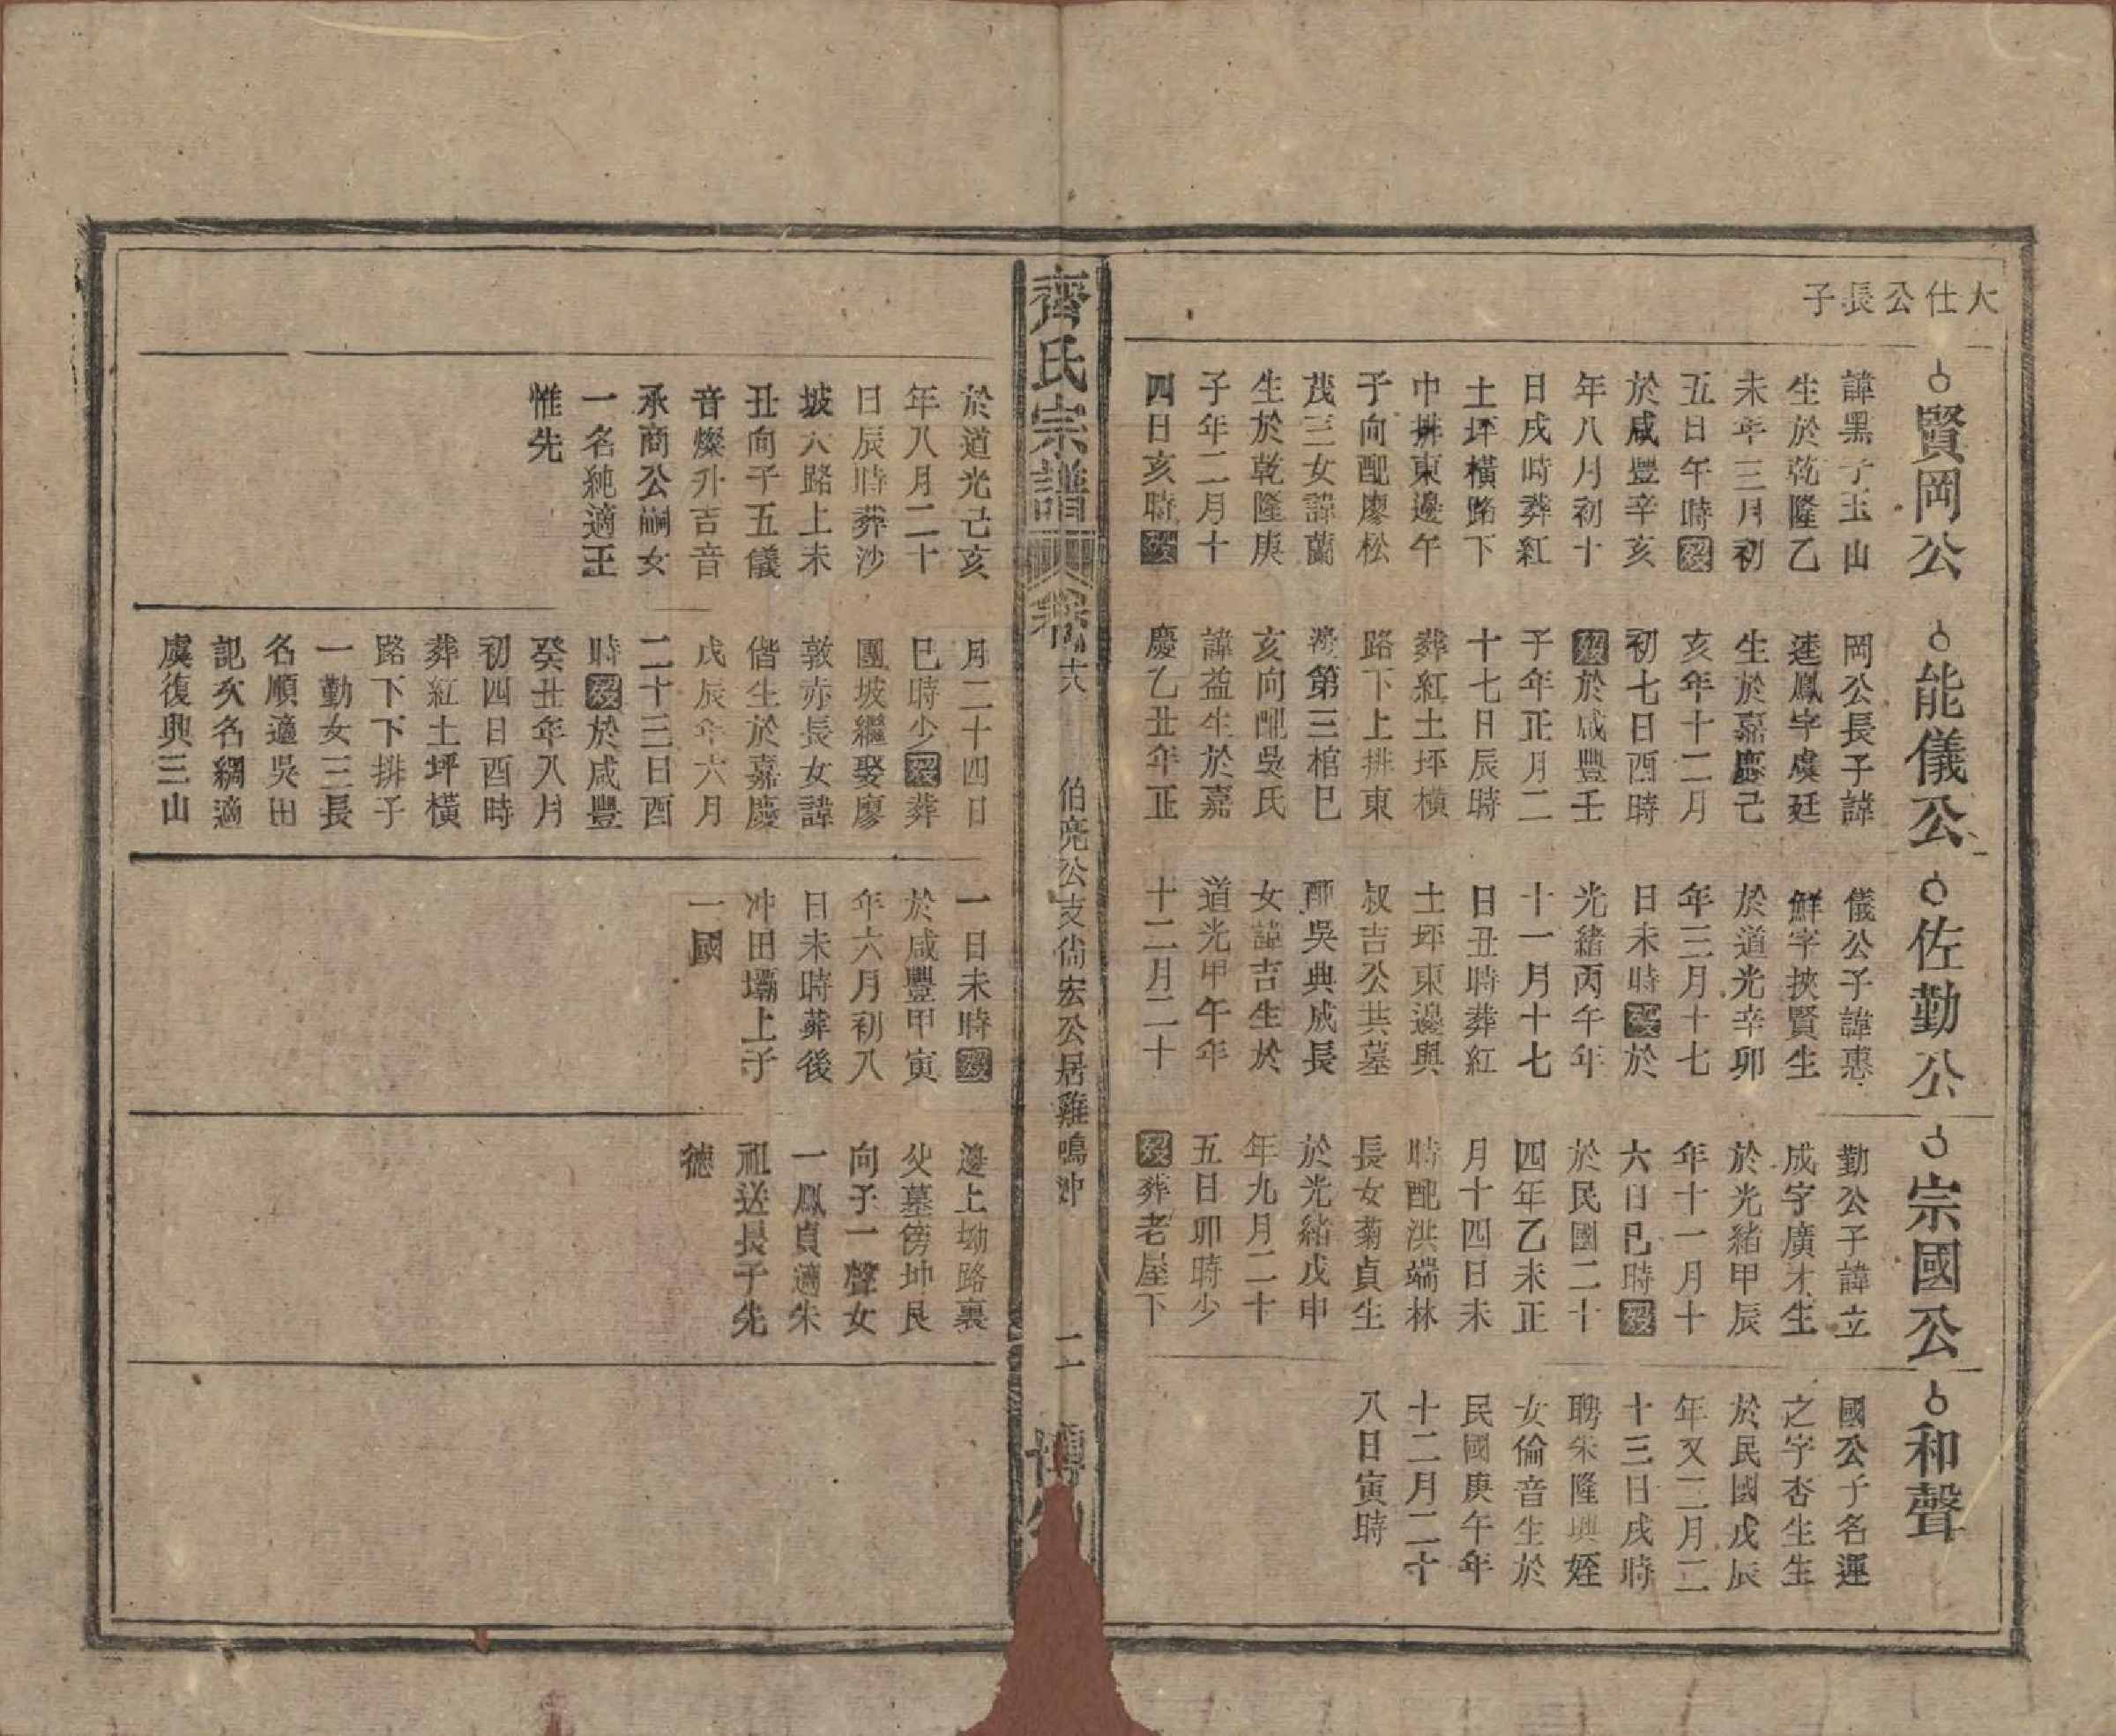 大仕公長子
賢岡公
諱黑子玉山
生於乾隆乙
未年三月初
五日午時歿
於咸豐辛亥
年八月初十
日戌時葬紅
土坪橫路下
中排東邊午
子向配廖松
茂三女諱蘭
生於乾隆庚
子年二月十
四日亥時歿
能儀公
岡公長子諱
逵鳳字虞廷
生於嘉慶己
亥年十二月
初七日酉時
歿於咸豐壬
子年正月二
十七日辰時
葬紅土坪橫
路下上排東
邊第三棺巳
亥向配吳氏
諱益生於嘉
慶乙丑年正
佐勤公
儀公子諱惠
鮮字挾賢生
於道光辛卯
年三月十七
日未時歿於
光緒丙午年
十一月十七
日丑時葬紅
土坪東邊與
叔吉公共墓
配吳典成長
女諱吉生於
道光甲午年
十二月二十
宗國公
勤公子諱立
成字廣才生
於光緒甲辰
年十一月十
六日巳時歿
於民國二十
四年乙未正
月十四日未
時配洪端林
長女菊貞生
於光緒戊申
年九月二十
五日卯時少
歿葬老屋下
和聲
國公子名運
之字杏生生
於民國戊辰
年又二月二
十三日戌時
聘朱隆興姪
女倫音生於
民國庚午年
十二月二十
八日寅時
齊氏宗譜
卷六
伯亮公支尙宏公居雞鳴冲
二
於道光己亥
年八月二十
日辰時葬沙
坡大路上未
丑向子五儀
音燦升吉音
承商公嗣女
一名純適王
惟先
月二十四日
巳時少歿葬
團坡繼娶廖
敦亦長女諱
偕生於嘉慶
戊辰年六月
二十三日酉
時歿於咸豐
癸丑年八月
初四日酉時
葬紅土坪橫
路下下排子
一勤女三長
名順適吳田
記次名綢適
虞復興三山
一日未時歿
於咸豐甲寅
年六月初八
日未時葬後
冲田壩上子
一國
邊上坳路裏
父墓傍坤艮
向子一聲女
一鳳貞適朱
祖送長子先
德